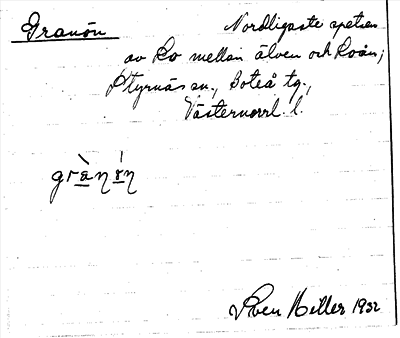 Granön
Nordligaste spetsen
av Ro mellan älven och Roån;
Styrnäs sn., Boteå tg.,
Västernorrl. l.
grànön
Sven Miller 1932